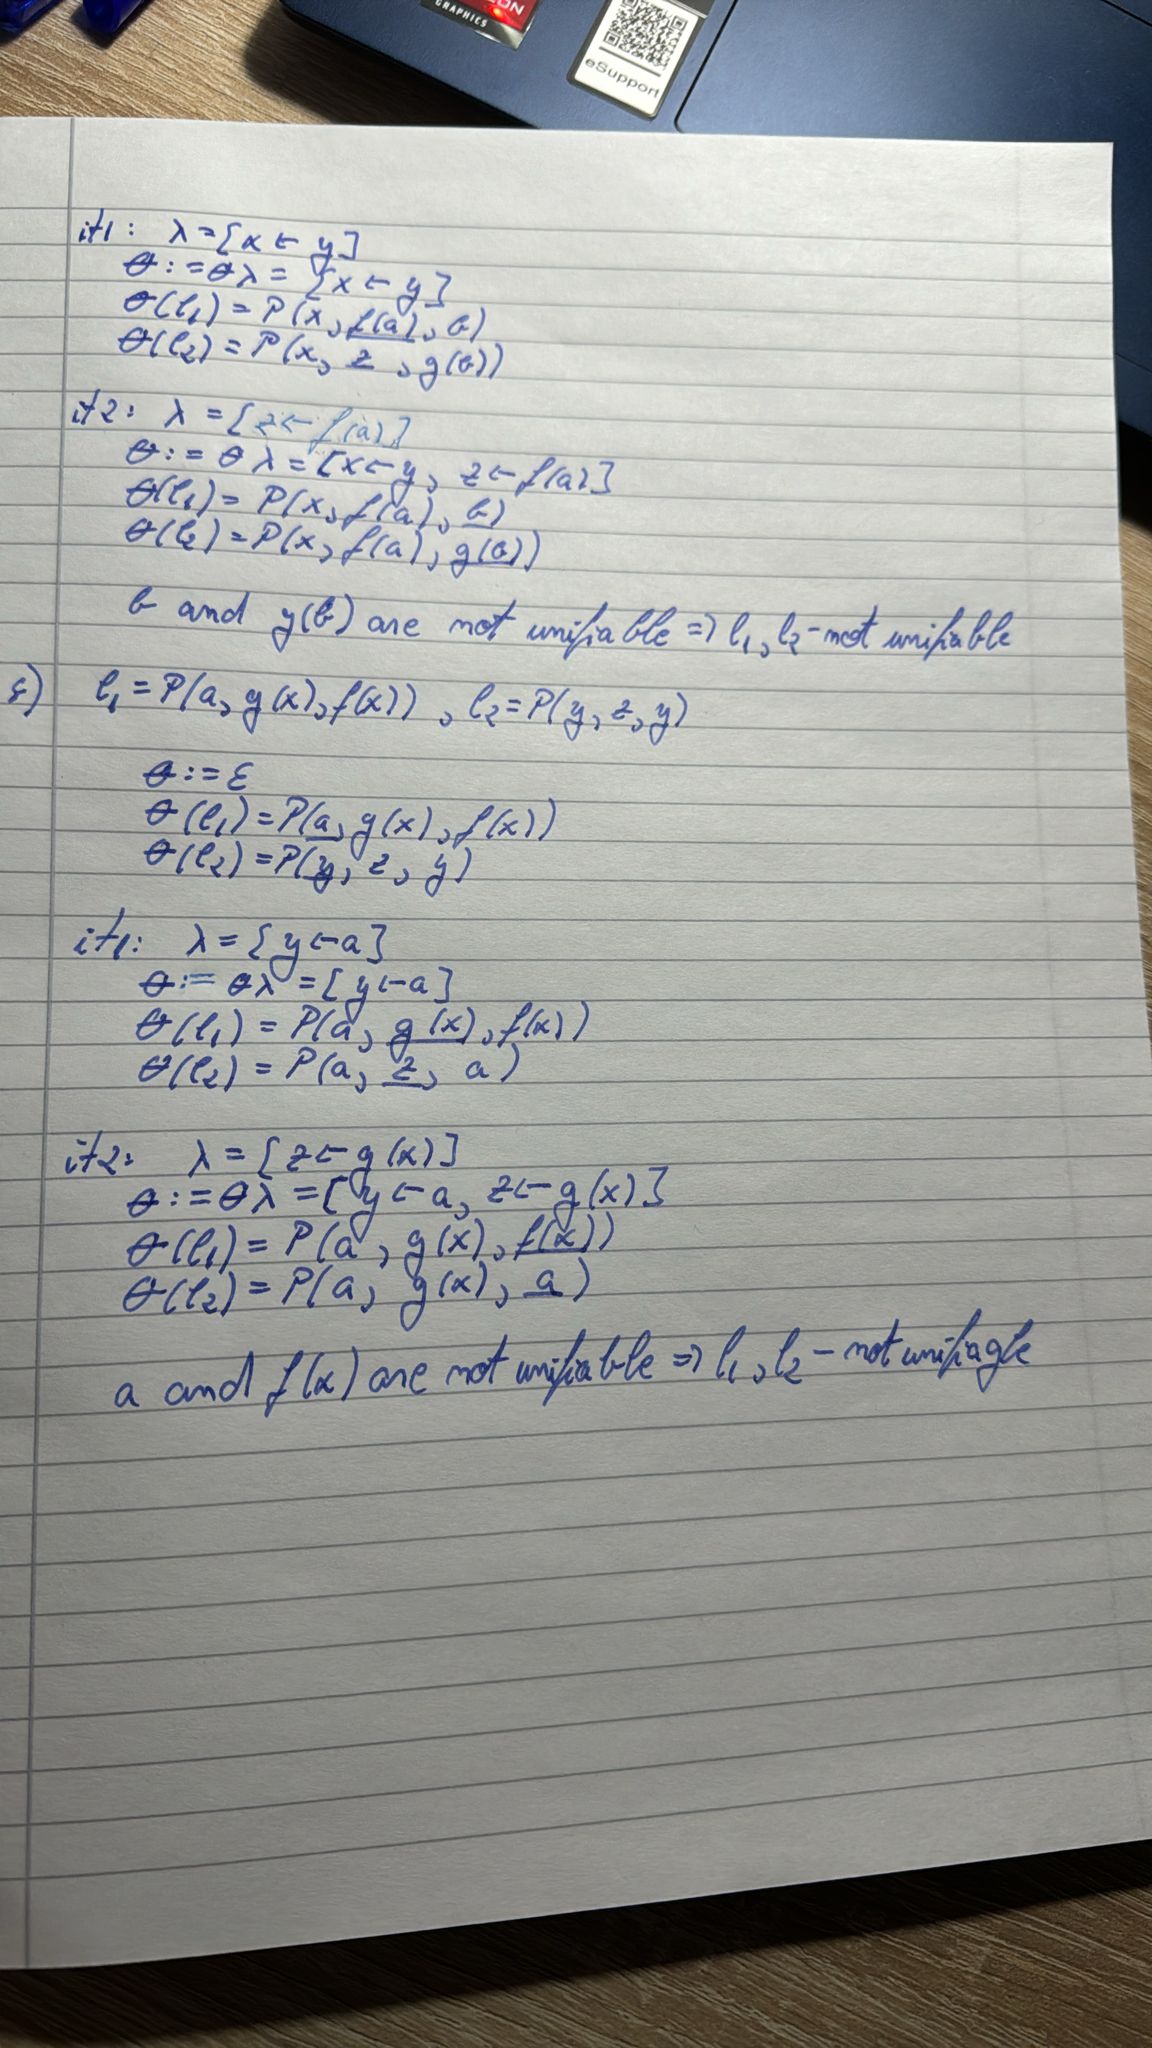 GRAPHICS
eSupport
it1: λ = [x ← y]
θ := θλ = [x ← y]
θ(l₁) = P(x, f(a), b)
θ(l₂) = P(x, z, g(b))
it2: λ = [z ← f(a)]
θ := θλ = [x ← y, z ← f(a)]
θ(l₁) = P(x, f(a), b)
θ(l₂) = P(x, f(a), g(b))
b and y(b) are not unifiable => l₁, l₂ - not unifiable
l₁ = P(a, g(x), f(x)), l₂ = P(y, z, y)
θ := ε
θ(l₁) = P(a, g(x), f(x))
θ(l₂) = P(y, z, y)
it1: λ = [y ← a]
θ := θλ = [y ← a]
θ(l₁) = P(a, g(x), f(x))
θ(l₂) = P(a, z, a)
it2: λ = [z ← g(x)]
θ := θλ = [y ← a, z ← g(x)]
θ(l₁) = P(a, g(x), f(x))
θ(l₂) = P(a, g(x), a)
a and f(x) are not unifiable => l₁, l₂ - not unifiagle